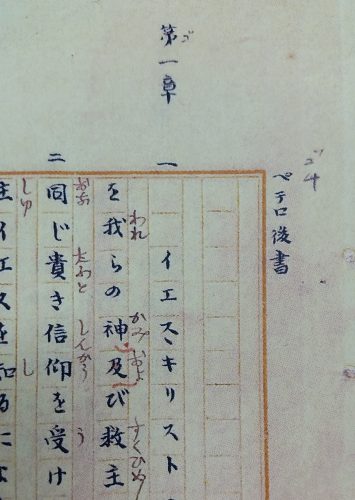 ペテロ後書
第一章
一
イエス・キリスト
われ かみ およ すくひぬ
を我らの神及び救主
二
おな たふと しんかう う
同じ貴き信仰を受け
しゆ し
主イエスを知るによ